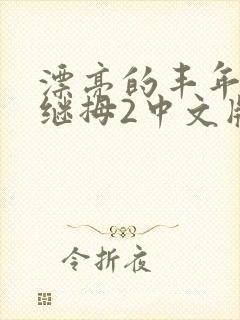 漂亮的丰年
继拇2中文版
令折夜